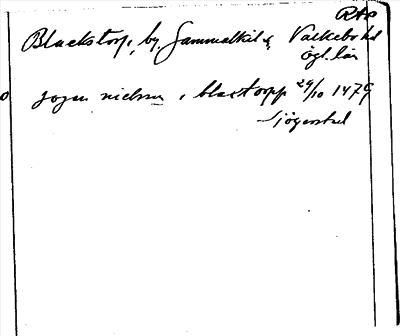 RAP
Blackstorp, by, Gammalkil sn, Valkebo hd
Ögl. län
jogan nielssen i blaxtorpp 29/10 1479
Sjögestad